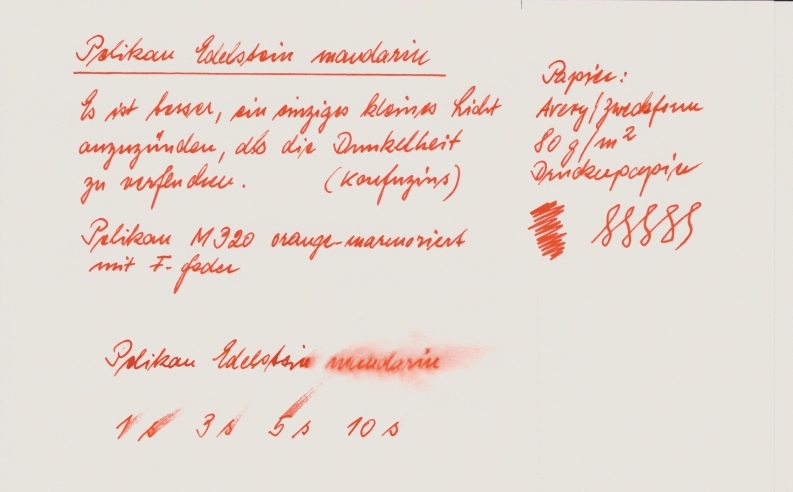 Pelikan Edelstein mandarin
Es ist besser, ein einziges kleines Licht
anzuzünden, als die Dunkelheit
zu verfluchen. (Konfuzius)
Pelikan M320 orange-marmoriert
mit F-feder
Papier:
Avery/Zweckform
80 g/m²
Druckerpapier
Pelikan Edelstein mandarin
1 s 3 s 5 s 10 s